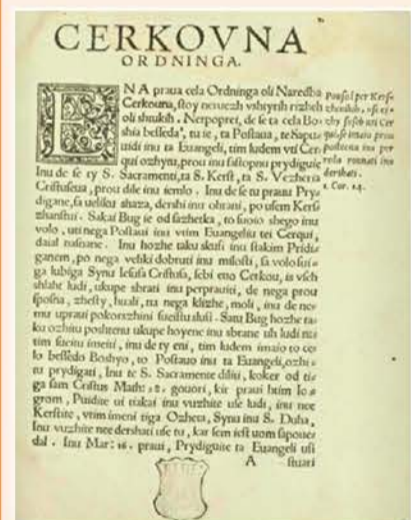 CERKOVNA
ORDNINGA.
ENA praua cela Ordninga oli Naredba
Cerkouna, stoy nevezh vshtyrih rizheh
oli shtukih. Nerpoprei, de se ta cela Bo-
shia besseda, tu ie, ta Postaua, te Sapu-
uidi inu ta Euangeli, tim ludem vti Cer-
qui ozhynu, prou inu sastopnu prydiguie
Inu de se ty S. Sacramenti, ta S. Kerst, ta S. Vezheria
Cristuseua, prou dile inu iemlo. Inu de se tu prauu Pry-
digane, sa ueliku shaza, dershi inu obrani, po usem Kersz
zhanstui. Sakai Bug ie od sazhetka, to suoio shego inu
volo, uti nega Postaui inu vtim Euangeliu tei Cerqui,
daial nasnane. Inu hozhe taku skusi inu stakim Pridi-
ganem, po nega velhki dobruti inu milosti, sa volo suii-
ga lubiga Synu Iesusa Cristusa, sebi eno Cerkou, is vseh
shlaht ludi, ukupe sbrati inu perprauiti, de nega prou
sposna, zhesty, huali, na nega klizhe, moli, inu de ne-
mu uprauipokorszhini sueistu slushi. Satu Bug hozhe ta-
ku ozhitu poshtenu ukupe hoyene inu sbrane uh ludi na
tim sueitu imeiti, inu de ty eni, tim ludem imaio to ce-
lo bessedo Boshyo, to Postauo inu ta Euangeli, ozhi-
tu prydigati, Inu te S. Sacramente diliti, koker od ti-
ga sam Cristus Math: 28. gouori, kir praui htim Io-
grom, Puidite ui tiakai inu vuzhite use ludi, inu nee
Kerstite, vtim imeni tiga Ozheta, Synu inu S. Duha,
Inu vuzhite nee dershati use tu, kar sem iest uom sapoue-
dal. Inu Mar: 16. praui, Prydiguite ta Euangeli usi
A stuari
Pousod per Kersz-
zhenikih
1. Cor. 14.